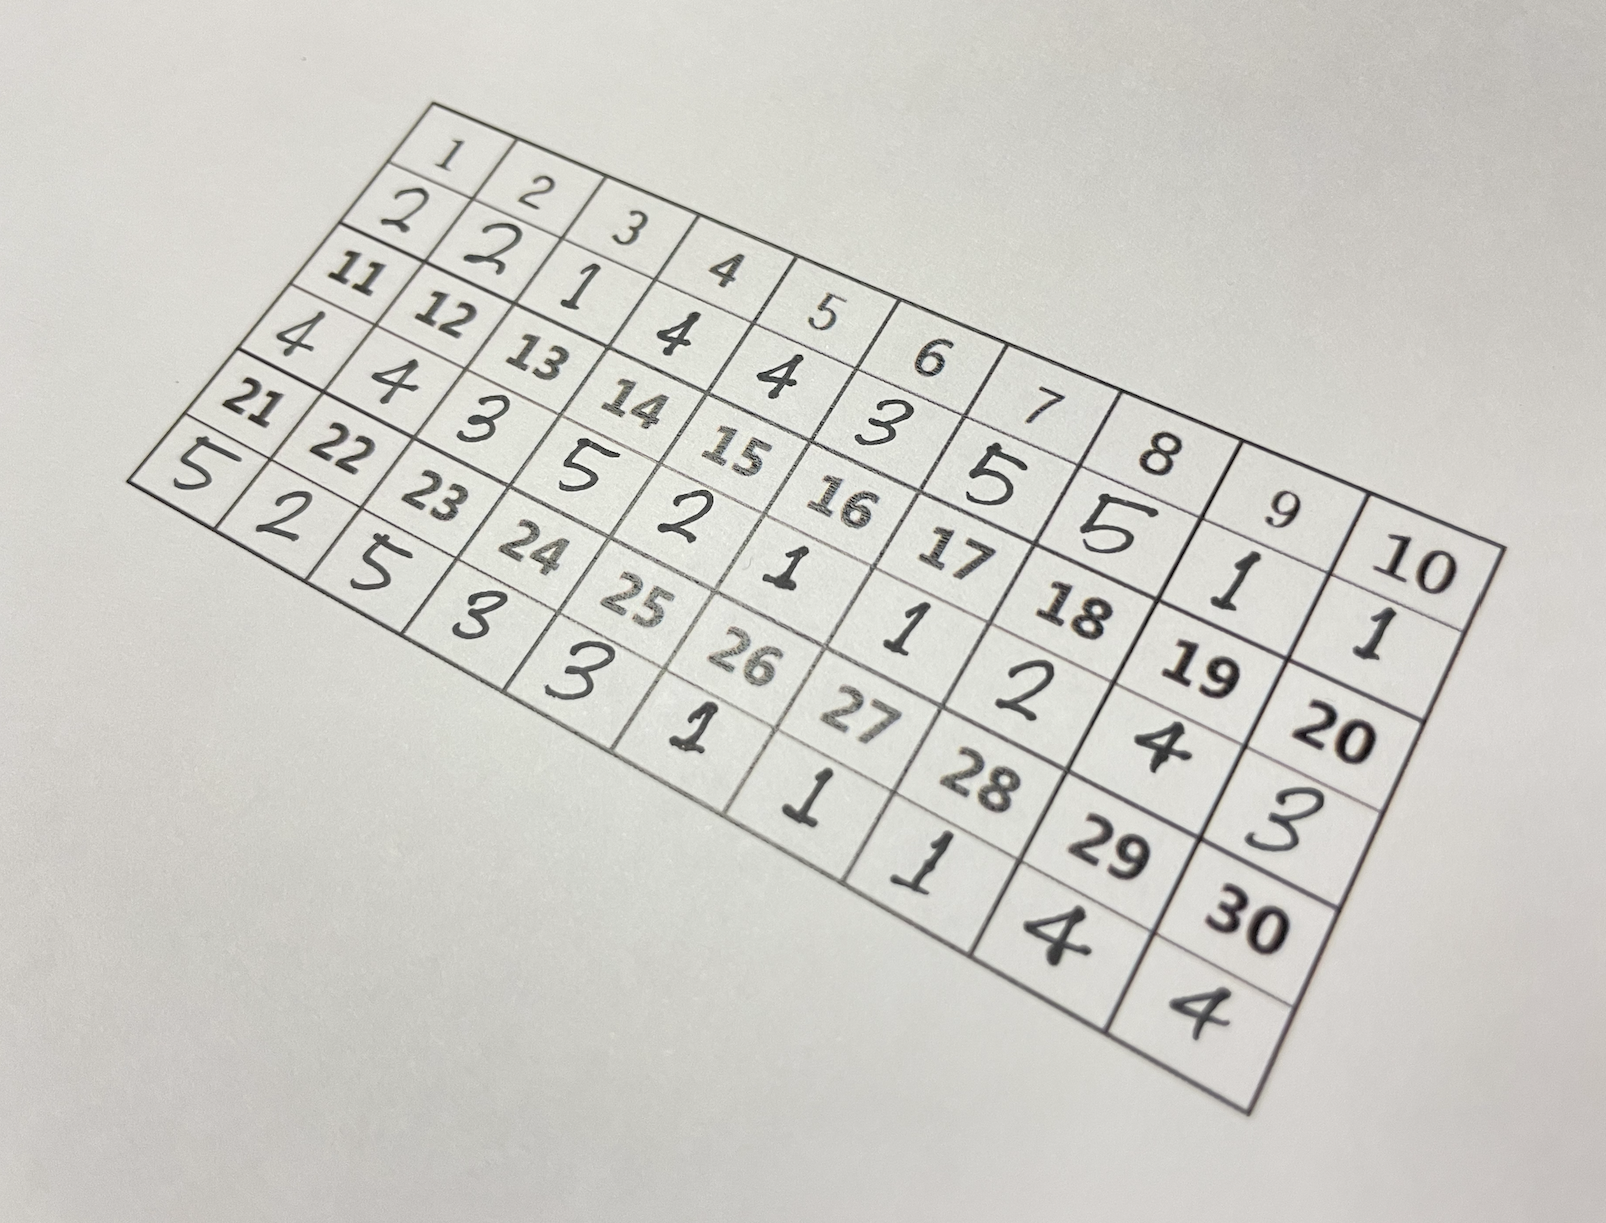 1 2 3 4 5 6 7 8 9 10
2 2 1 4 4 3 5 5 1 1
11 12 13 14 15 16 17 18 19 20
4 4 3 5 2 1 1 2 4 3
21 22 23 24 25 26 27 28 29 30
5 2 5 3 3 1 1 1 4 4